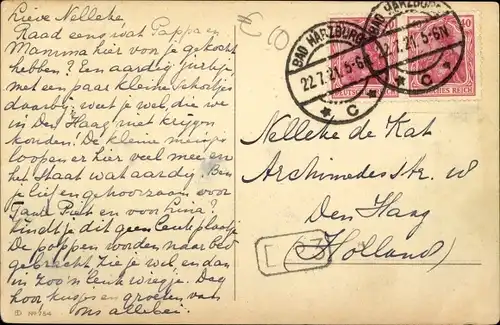 Lieve Nelleke
Raad eens wat Pappa en
Mamma hier voor je gekocht
hebben? Een aardig jurkje,
met een paar kleine schortjes
daarbij, weet je wel, die we
in Den Haag niet krijgen
konden. De kleine meisjes
loopen er hier veel mee en
het staat wat aardig. Ben
je lief en gehoorzaam voor
Tante Piet en voor Lina?
Vindt je dit geen leuk plaatje
De poppen worden naar bed
gebracht zie je wel en dan
in zoo'n leuk wiegje. Dag
hoor kusjes en groeten van
ons allebei.
No 754
BAD HARZBURG
22.7.21. 5-6N
* C *
BAD HARZBURG
22.7.21. 5-6N
* C *
40
DEUTSCHES REICH
Nelleke de Kat
Archimedesstr. 18
Den Haag
(Holland)